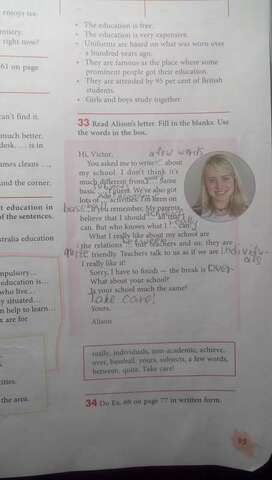 • The education is free.
• The education is very expensive.
• Uniforms are based on what was worn over
a hundred years ago.
• They are famous as the place where some
prominent people got their education.
• They are attended by 95 per cent of British
students.
• Girls and boys study together.
33 Read Alison's letter. Fill in the blanks. Use
the words in the box.
Hi, Victor,
You asked me to write ... about
a few words
my school. I don't think it's
much different from ... Same
basic ... I guess. We've also got
lots of ... activities. I'm keen on
baseball, if you remember. My parents
believe that I should ... all that I
can. But who knows what I ... can?
What I really like about my school are
the relations ... our teachers and us; they are
between
quite friendly. Teachers talk to us as if we are
individuals
I really like it!
Sorry, I have to finish — the break is over
What about your school?
Is your school much the same?
Take care!
Yours,
Alison
really, individuals, non-academic, achieve,
over, baseball, yours, subjects, a few words,
between, quite, Take care!
34 Do Ex. 69 on page 77 in written form.
enjoys tea
right now?
61 on page
can't find it.
much better,
desk. ... is in
ames cleans ...,
und the corner.
t education in
of the sentences.
stralia education
mpulsory...
education is...
who live...
y situated...
n help to learn...
x are for
cities.
the area.